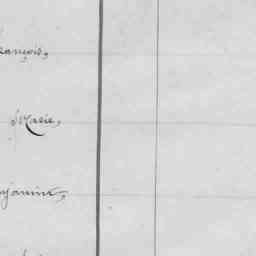 rançois,
Marie,
jamin,